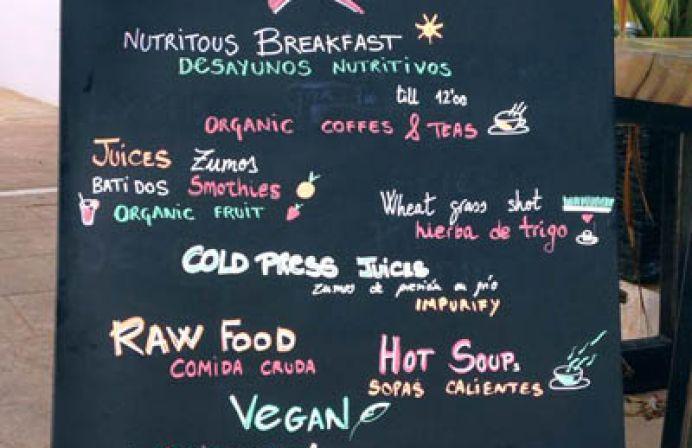 NUTRITOUS BREAKFAST
DESAYUNOS NUTRITIVOS
till 12'00
ORGANIC COFFES & TEAS
JUICES ZUMOS
BATIDOS SMOTHIES
ORGANIC FRUIT
Wheat grass shot
hierba de trigo
COLD PRESS JUICES
zumos de presión en frío
IMPURIFY
RAW FOOD
COMIDA CRUDA
HOT SOUPS
SOPAS CALIENTES
VEGAN